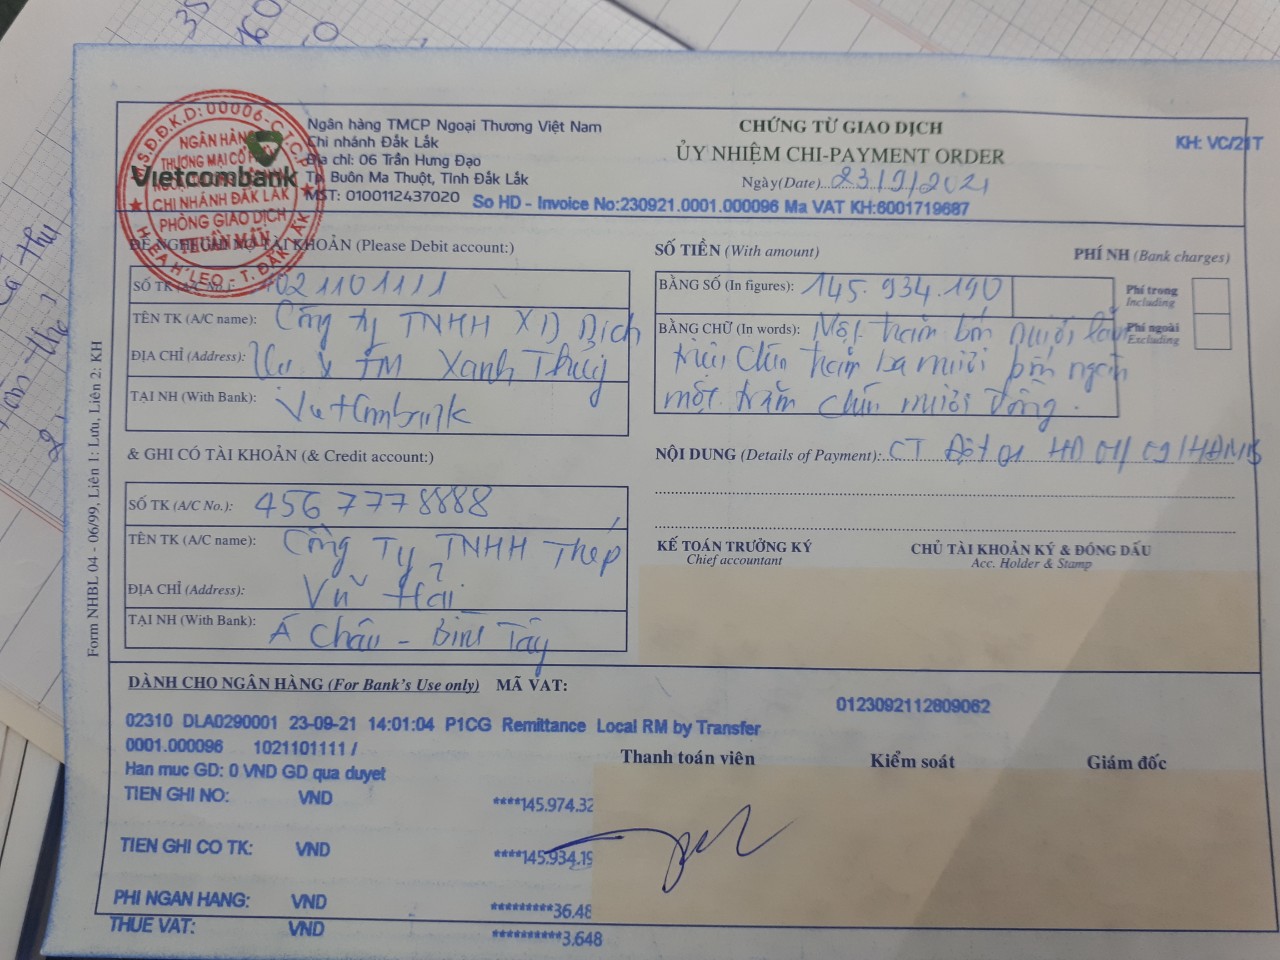 S.Đ.K.D: 00006-C.T.C.P
NGÂN HÀNG
THƯƠNG MẠI CỔ PHẦN
CHI NHÁNH ĐẮK LẮK
PHÒNG GIAO DỊCH
THUẦN MẪN
H. EA H'LEO - T. ĐẮK LẮK
Vietcombank
Ngân hàng TMCP Ngoại Thương Việt Nam
Chi nhánh Đắk Lắk
Địa chỉ: 06 Trần Hưng Đạo
Tp Buôn Ma Thuột, Tỉnh Đắk Lắk
MST: 0100112437020
CHỨNG TỪ GIAO DỊCH
ỦY NHIỆM CHI-PAYMENT ORDER
Ngày(Date)...23/9/2021
KH: VC/21T
So HD - Invoice No:230921.0001.000096 Ma VAT KH:6001719687
ĐỀ NGHỊ GHI NỢ TÀI KHOẢN (Please Debit account:)
SỐ TK (A/C No.): 1021101111
TÊN TK (A/C name): Công ty TNHH XD Dịch
ĐỊA CHỈ (Address): Vụ & TM Xanh Thúy
TẠI NH (With Bank): Vietcombank
SỐ TIỀN (With amount)
PHÍ NH (Bank charges)
BẰNG SỐ (In figures): 145.934.190
Phí trong
Including
BẰNG CHỮ (In words): Một trăm bốn mươi lăm
Phí ngoài
Excluding
triệu chín trăm ba mươi bốn ngàn
một trăm chín mươi đồng.
& GHI CÓ TÀI KHOẢN (& Credit account:)
SỐ TK (A/C No.): 45677778888
TÊN TK (A/C name): Công Ty TNHH Thép
ĐỊA CHỈ (Address): Vũ Hải
TẠI NH (With Bank): Á Châu - Bình Tây
NỘI DUNG (Details of Payment): CT Đợt 01 HĐ 01/09/HĐMB
KẾ TOÁN TRƯỞNG KÝ
Chief accountant
CHỦ TÀI KHOẢN KÝ & ĐÓNG DẤU
Acc. Holder & Stamp
Form NHBL 04 - 06/99, Liên 1: Lưu, Liên 2: KH
DÀNH CHO NGÂN HÀNG (For Bank's Use only) MÃ VAT:
0123092112809062
02310 DLA0290001 23-09-21 14:01:04 P1CG Remittance Local RM by Transfer
0001.000096 1021101111 /
Han muc GD: 0 VND GD qua duyet
Thanh toán viên
Kiểm soát
Giám đốc
TIEN GHI NO: VND ****145.974.32
TIEN GHI CO TK: VND ****145.934.19
PHI NGAN HANG: VND *********36.48
THUE VAT: VND **********3.648